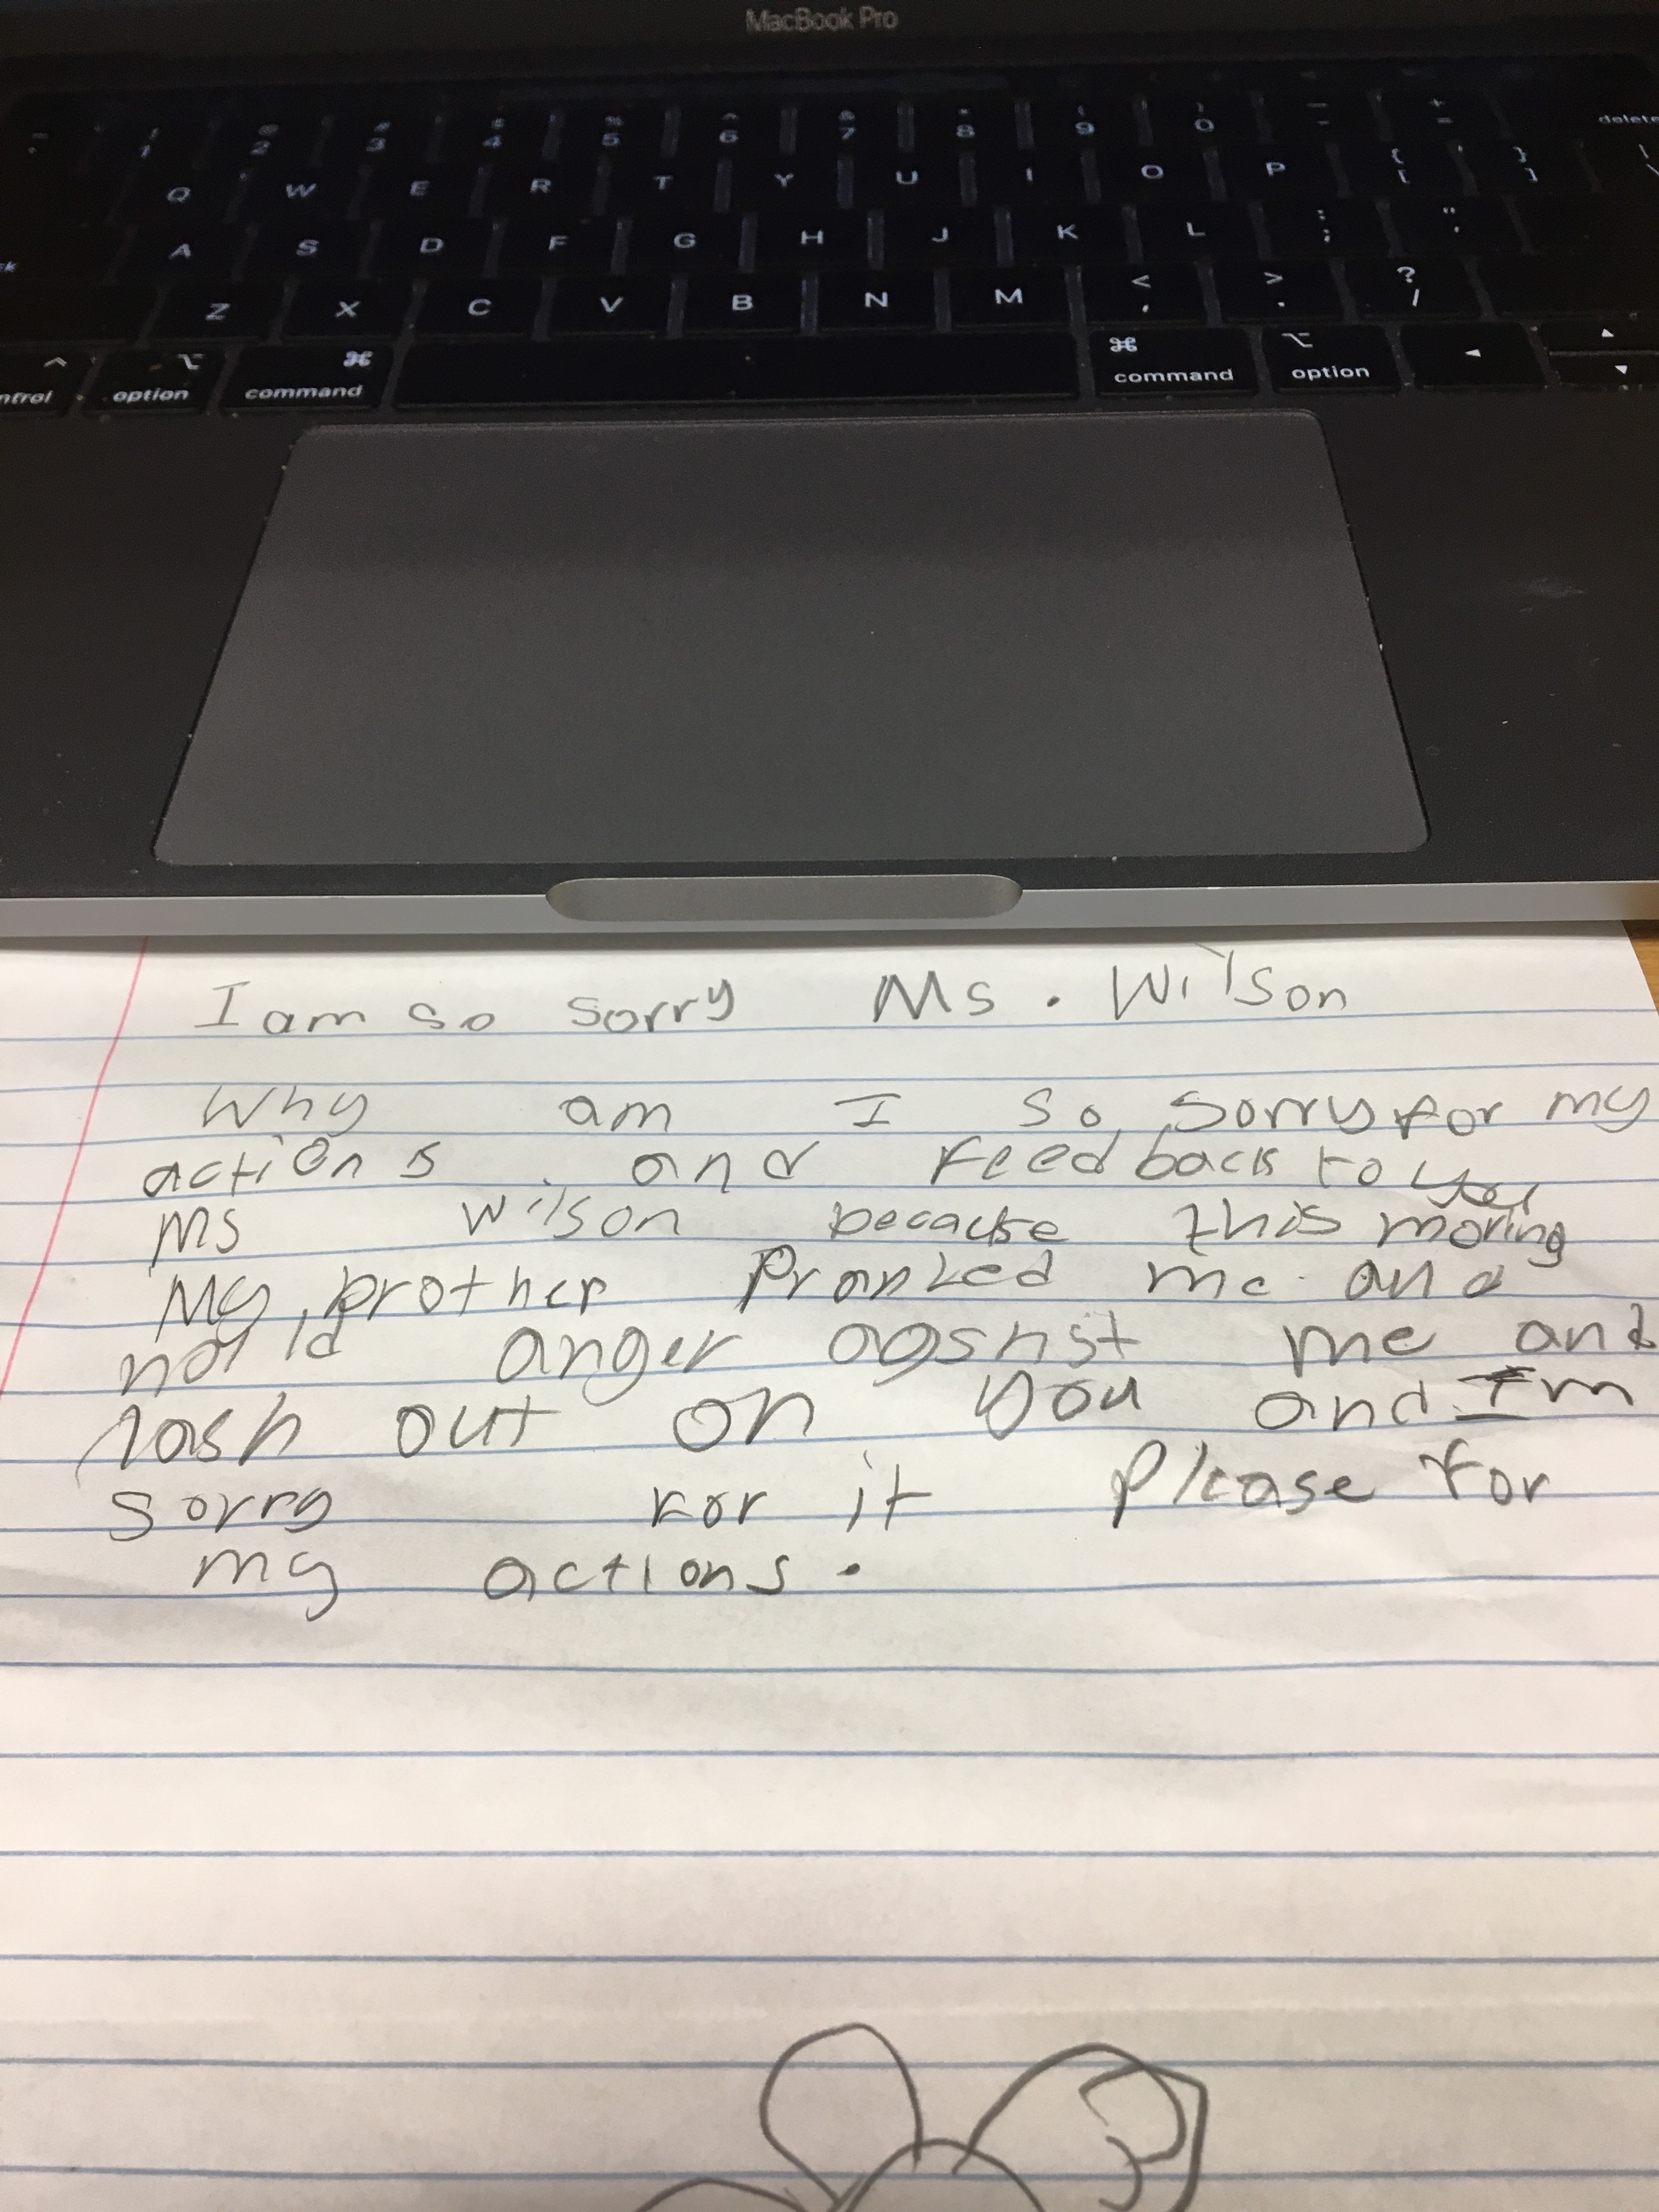 MacBook Pro
~ ! 1 @ 2 # 3 $ 4 % 5 ^ 6 & 7 * 8 ( 9 ) 0 _ - + = delete
Q W E R T Y U I O P { [ } ] | \
A S D F G H J K L : ; " '
Z X C V B N M < , > . ? /
^ ⌥ ⌘ ⌘ ⌥ ◂ ▴
option command command option ▾
I am so sorry Ms. Wilson
Why am I so sorry for my
actions and feedback to you
Ms Wilson because this moring
My brother Pranked me and
hold anger agsnst me and
lash out on you and Im
sorry for it Please for
my actions.